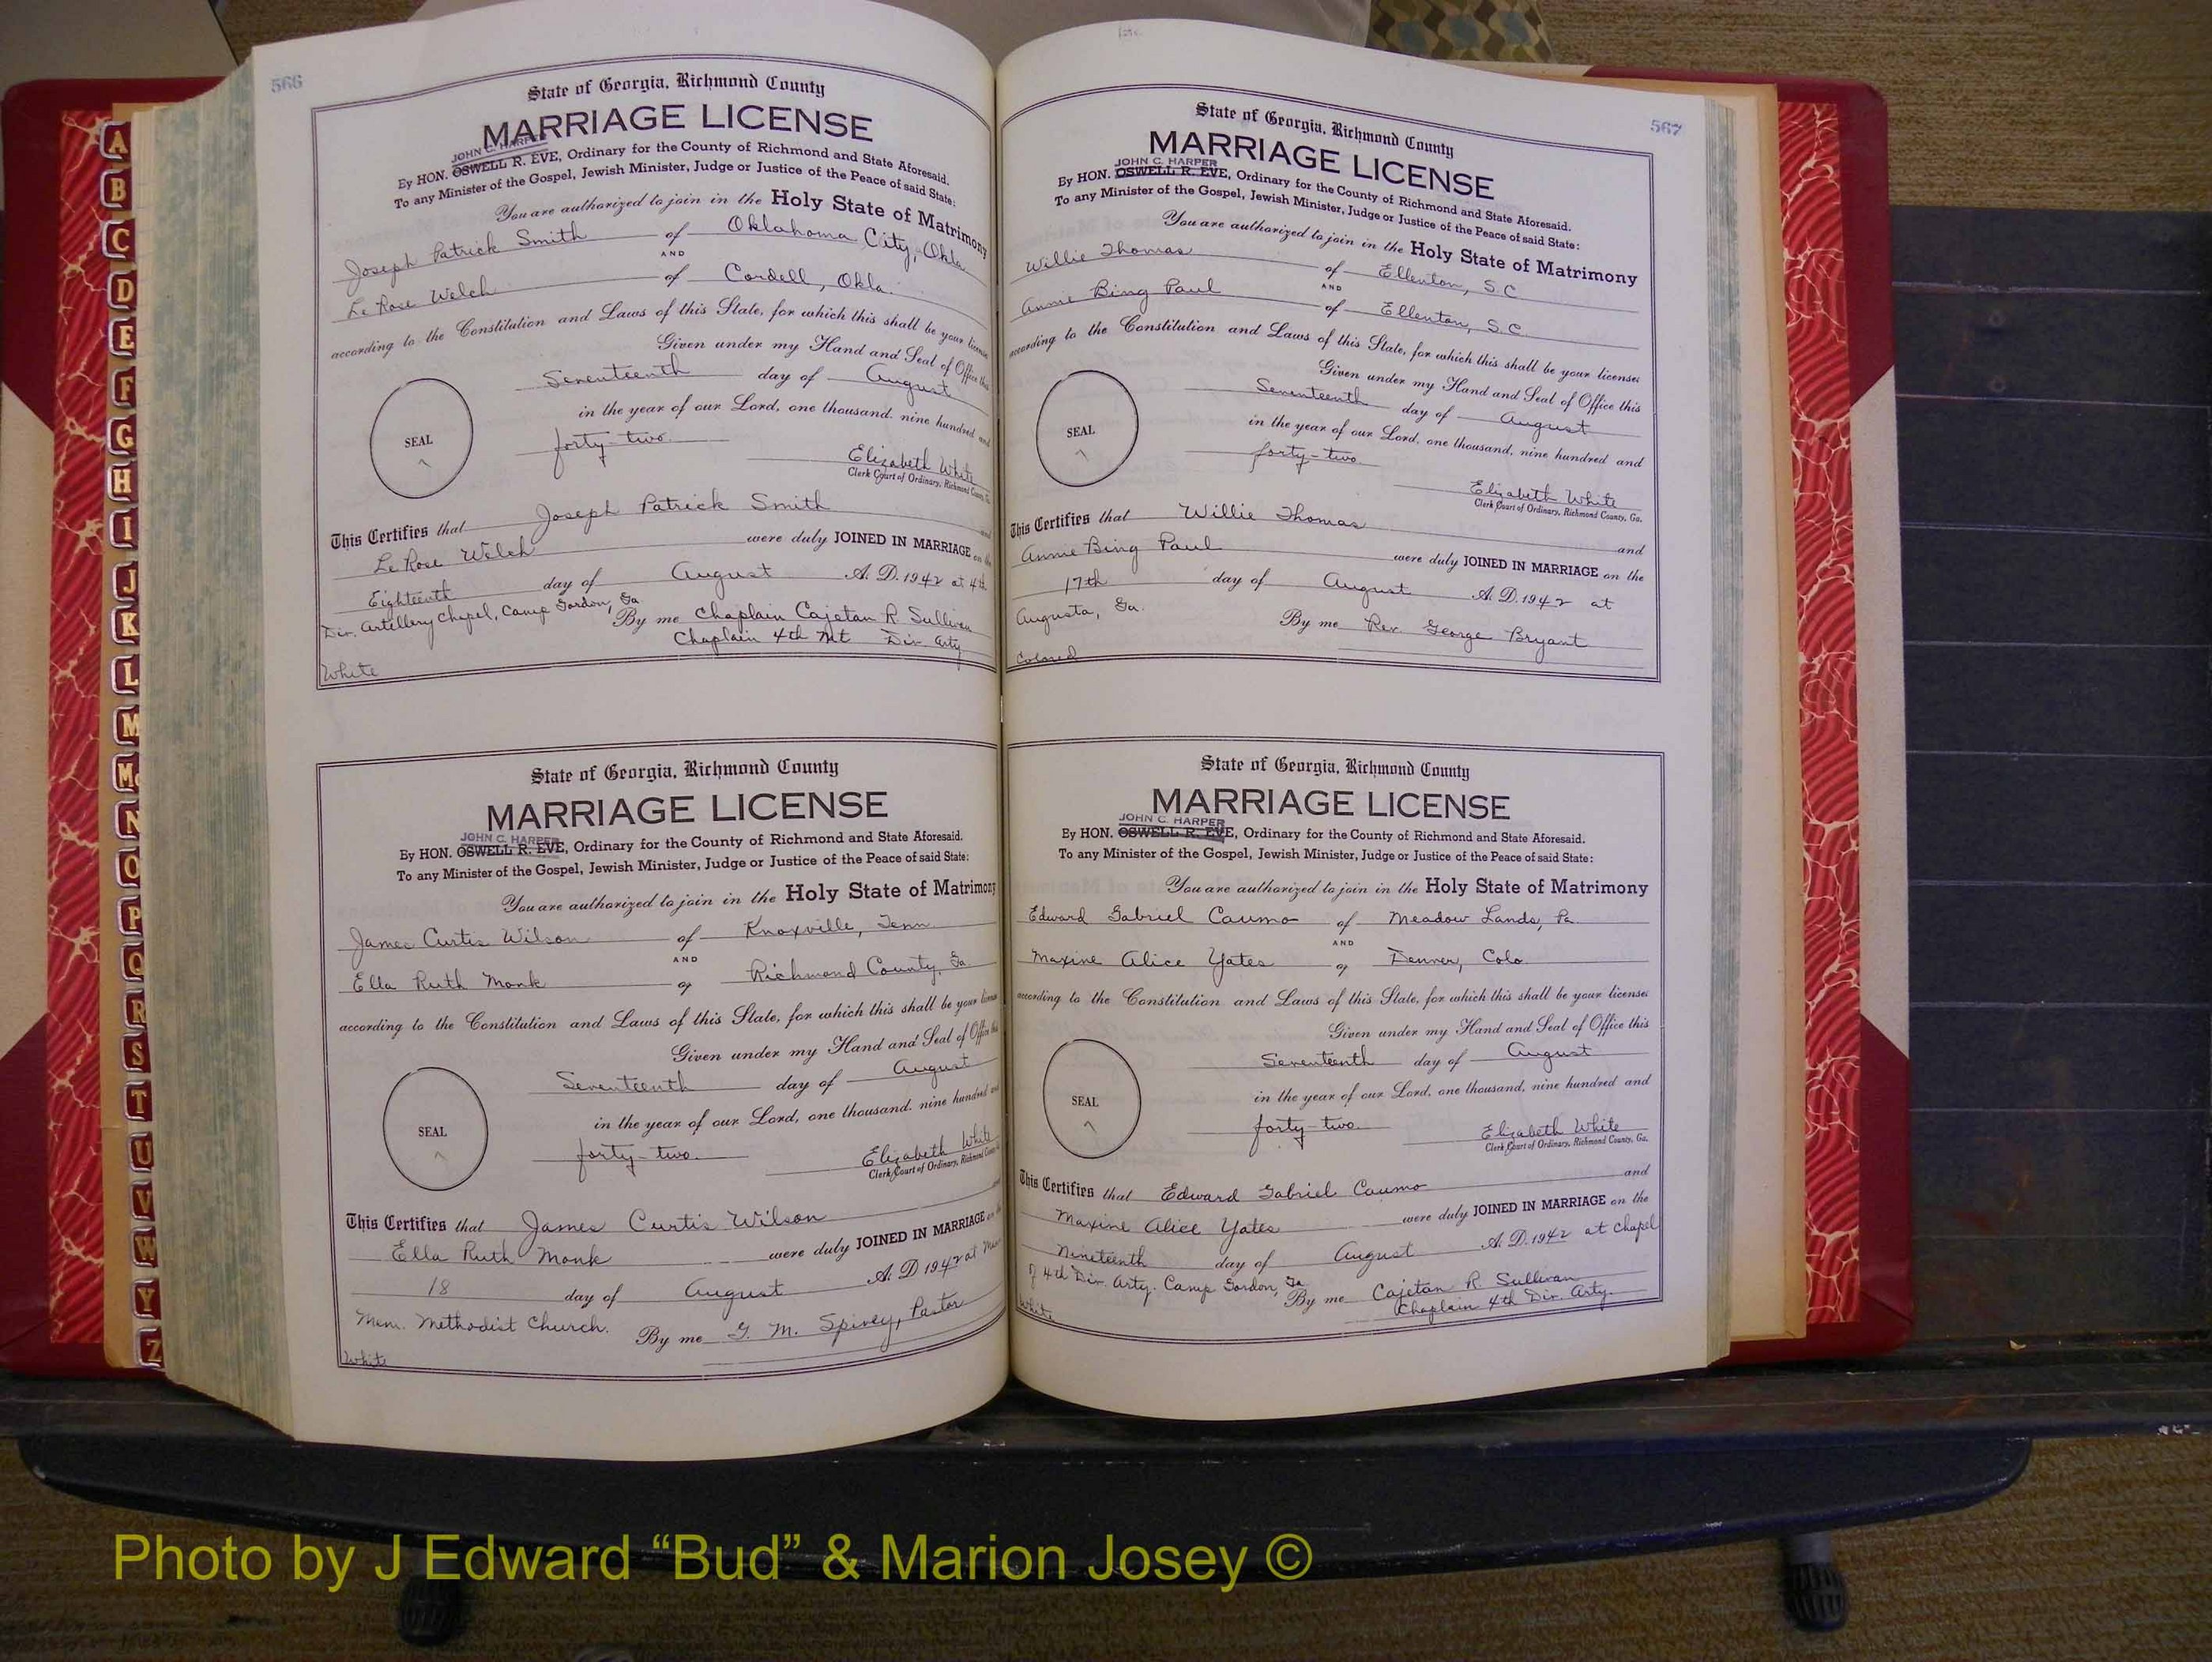 566
State of Georgia, Richmond County
MARRIAGE LICENSE
JOHN C. HARPER
By HON. OSWELL R. EVE, Ordinary for the County of Richmond and State Aforesaid.
To any Minister of the Gospel, Jewish Minister, Judge or Justice of the Peace of said State:
You are authorized to join in the Holy State of Matrimony
Joseph Patrick Smith of Oklahoma City, Okla.
AND
Le Rose Welch of Cordell, Okla.
according to the Constitution and Laws of this State, for which this shall be your license
Given under my Hand and Seal of Office this
Seventeenth day of August
in the year of our Lord, one thousand, nine hundred and
forty-two.
SEAL
Elizabeth White
Clerk Court of Ordinary, Richmond County, Ga.
This Certifies that Joseph Patrick Smith and
Le Rose Welch were duly JOINED IN MARRIAGE on the
Eighteenth day of August A. D. 1942 at 4th
Div. Artillery Chapel, Camp Gordon, Ga
By me Chaplain Cajetan R. Sullivan
Chaplain 4th Mt Div. Arty
White
State of Georgia, Richmond County
MARRIAGE LICENSE
JOHN C. HARPER
By HON. OSWELL R. EVE, Ordinary for the County of Richmond and State Aforesaid.
To any Minister of the Gospel, Jewish Minister, Judge or Justice of the Peace of said State:
You are authorized to join in the Holy State of Matrimony
James Curtis Wilson of Knoxville, Tenn.
AND
Ella Ruth Monk of Richmond County, Ga
according to the Constitution and Laws of this State, for which this shall be your license
Given under my Hand and Seal of Office this
Seventeenth day of August
in the year of our Lord, one thousand, nine hundred and
forty-two.
SEAL
Elizabeth White
Clerk Court of Ordinary, Richmond County
This Certifies that James Curtis Wilson
Ella Ruth Monk were duly JOINED IN MARRIAGE on the
18 day of August A. D 1942 at
Mem. Methodist Church. By me G. M. Spivey, Pastor
White
567
State of Georgia, Richmond County
MARRIAGE LICENSE
JOHN C. HARPER
By HON. OSWELL R. EVE, Ordinary for the County of Richmond and State Aforesaid.
To any Minister of the Gospel, Jewish Minister, Judge or Justice of the Peace of said State:
You are authorized to join in the Holy State of Matrimony
Willie Thomas of Ellenton, S.C.
AND
Annie Bing Paul of Ellenton, S.C.
according to the Constitution and Laws of this State, for which this shall be your license:
Given under my Hand and Seal of Office this
Seventeenth day of August
in the year of our Lord, one thousand, nine hundred and
forty-two.
SEAL
Elizabeth White
Clerk Court of Ordinary, Richmond County, Ga.
This Certifies that Willie Thomas and
Annie Bing Paul were duly JOINED IN MARRIAGE on the
17th day of August A. D. 1942 at
Augusta, Ga. By me Rev. George Bryant
Colored
State of Georgia, Richmond County
MARRIAGE LICENSE
JOHN C. HARPER
By HON. OSWELL R. EVE, Ordinary for the County of Richmond and State Aforesaid.
To any Minister of the Gospel, Jewish Minister, Judge or Justice of the Peace of said State:
You are authorized to join in the Holy State of Matrimony
Edward Gabriel Caumo of Meadow Lands, Pa.
AND
Maxine Alice Yates of Denver, Colo.
according to the Constitution and Laws of this State, for which this shall be your license:
Given under my Hand and Seal of Office this
Seventeenth day of August
in the year of our Lord, one thousand, nine hundred and
forty-two.
SEAL
Elizabeth White
Clerk Court of Ordinary, Richmond County, Ga.
This Certifies that Edward Gabriel Caumo and
Maxine Alice Yates were duly JOINED IN MARRIAGE on the
Nineteenth day of August A. D. 1942 at Chapel
of 4th Div. Arty. Camp Gordon, Ga By me Cajetan R. Sullivan
Chaplain 4th Div. Arty.
White
A
B
C
D
E
F
G
H
I
J
K
L
M
Mc
N
O
P
Q
R
S
T
U
V
W
Y
Z
Photo by J Edward “Bud” & Marion Josey ©